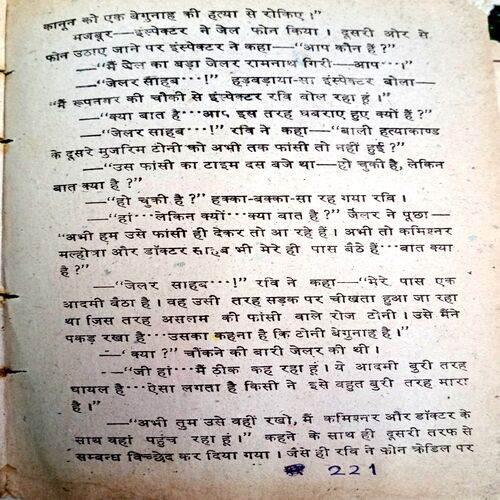 कानून को एक बेगुनाह की हत्या से रोकिए।”
मजबूर—इंस्पेक्टर ने जेल फोन किया। दूसरी ओर से
फोन उठाए जाने पर इंस्पेक्टर ने कहा—“आप कौन हैं?”
—“मैं जेल का बड़ा जेलर रामनाथ गिरी—आप···।”
—“जेलर साहब···!” हड़बड़ाया-सा इंस्पेक्टर बोला—
“मैं रूपनगर की चौकी से इंस्पेक्टर रवि बोल रहा हूं।”
—“क्या बात है···आप इस तरह घबराए हुए क्यों हैं?”
—“जेलर साहब···!” रवि ने कहा—“बाली हत्याकाण्ड
के दूसरे मुजरिम टोनी को अभी तक फांसी तो नहीं हुई?”
—“उस फांसी का टाइम दस बजे था—हो चुकी है, लेकिन
बात क्या है?”
—“हो चुकी है?” हक्का-बक्का-सा रह गया रवि।
—“हां···लेकिन क्यों···क्या बात है?” जेलर ने पूछा—
“अभी हम उसे फांसी ही देकर तो आ रहे हैं। अभी तो कमिश्नर
मल्होत्रा और डॉक्टर साहब भी मेरे ही पास बैठे हैं···बात क्या
है?”
—“जेलर साहब···!” रवि ने कहा—“मेरे पास एक
आदमी बैठा है। वह उसी तरह सड़क पर चीखता हुआ जा रहा
था जिस तरह असलम की फांसी वाले रोज टोनी। उसे मैंने
पकड़ रखा है···उसका कहना है कि टोनी बेगुनाह है।”
—“क्या?” चौंकने की बारी जेलर की थी।
—“जी हां···मैं ठीक कह रहा हूं। ये आदमी बुरी तरह
घायल है···ऐसा लगता है किसी ने इसे बहुत बुरी तरह मारा
है।”
—“अभी तुम उसे वहीं रखो, मैं कमिश्नर और डॉक्टर के
साथ वहां पहुंच रहा हूं।” कहने के साथ ही दूसरी तरफ से
सम्बन्ध विच्छेद कर दिया गया। जैसे ही रवि ने फोन क्रेडिल पर
221